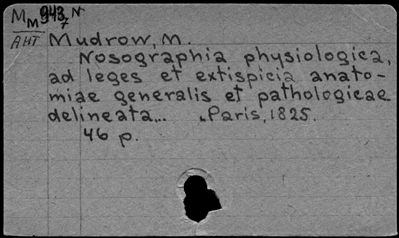 Mм 943, N
7
АНТ Mudrow, M.
Nosographia physiologica,
ad leges et extispicia anato-
miae generalis et pathologicae
delineata... Paris, 1825.
46 p.